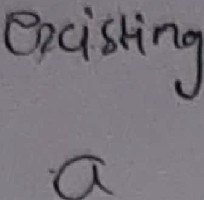 existing
a